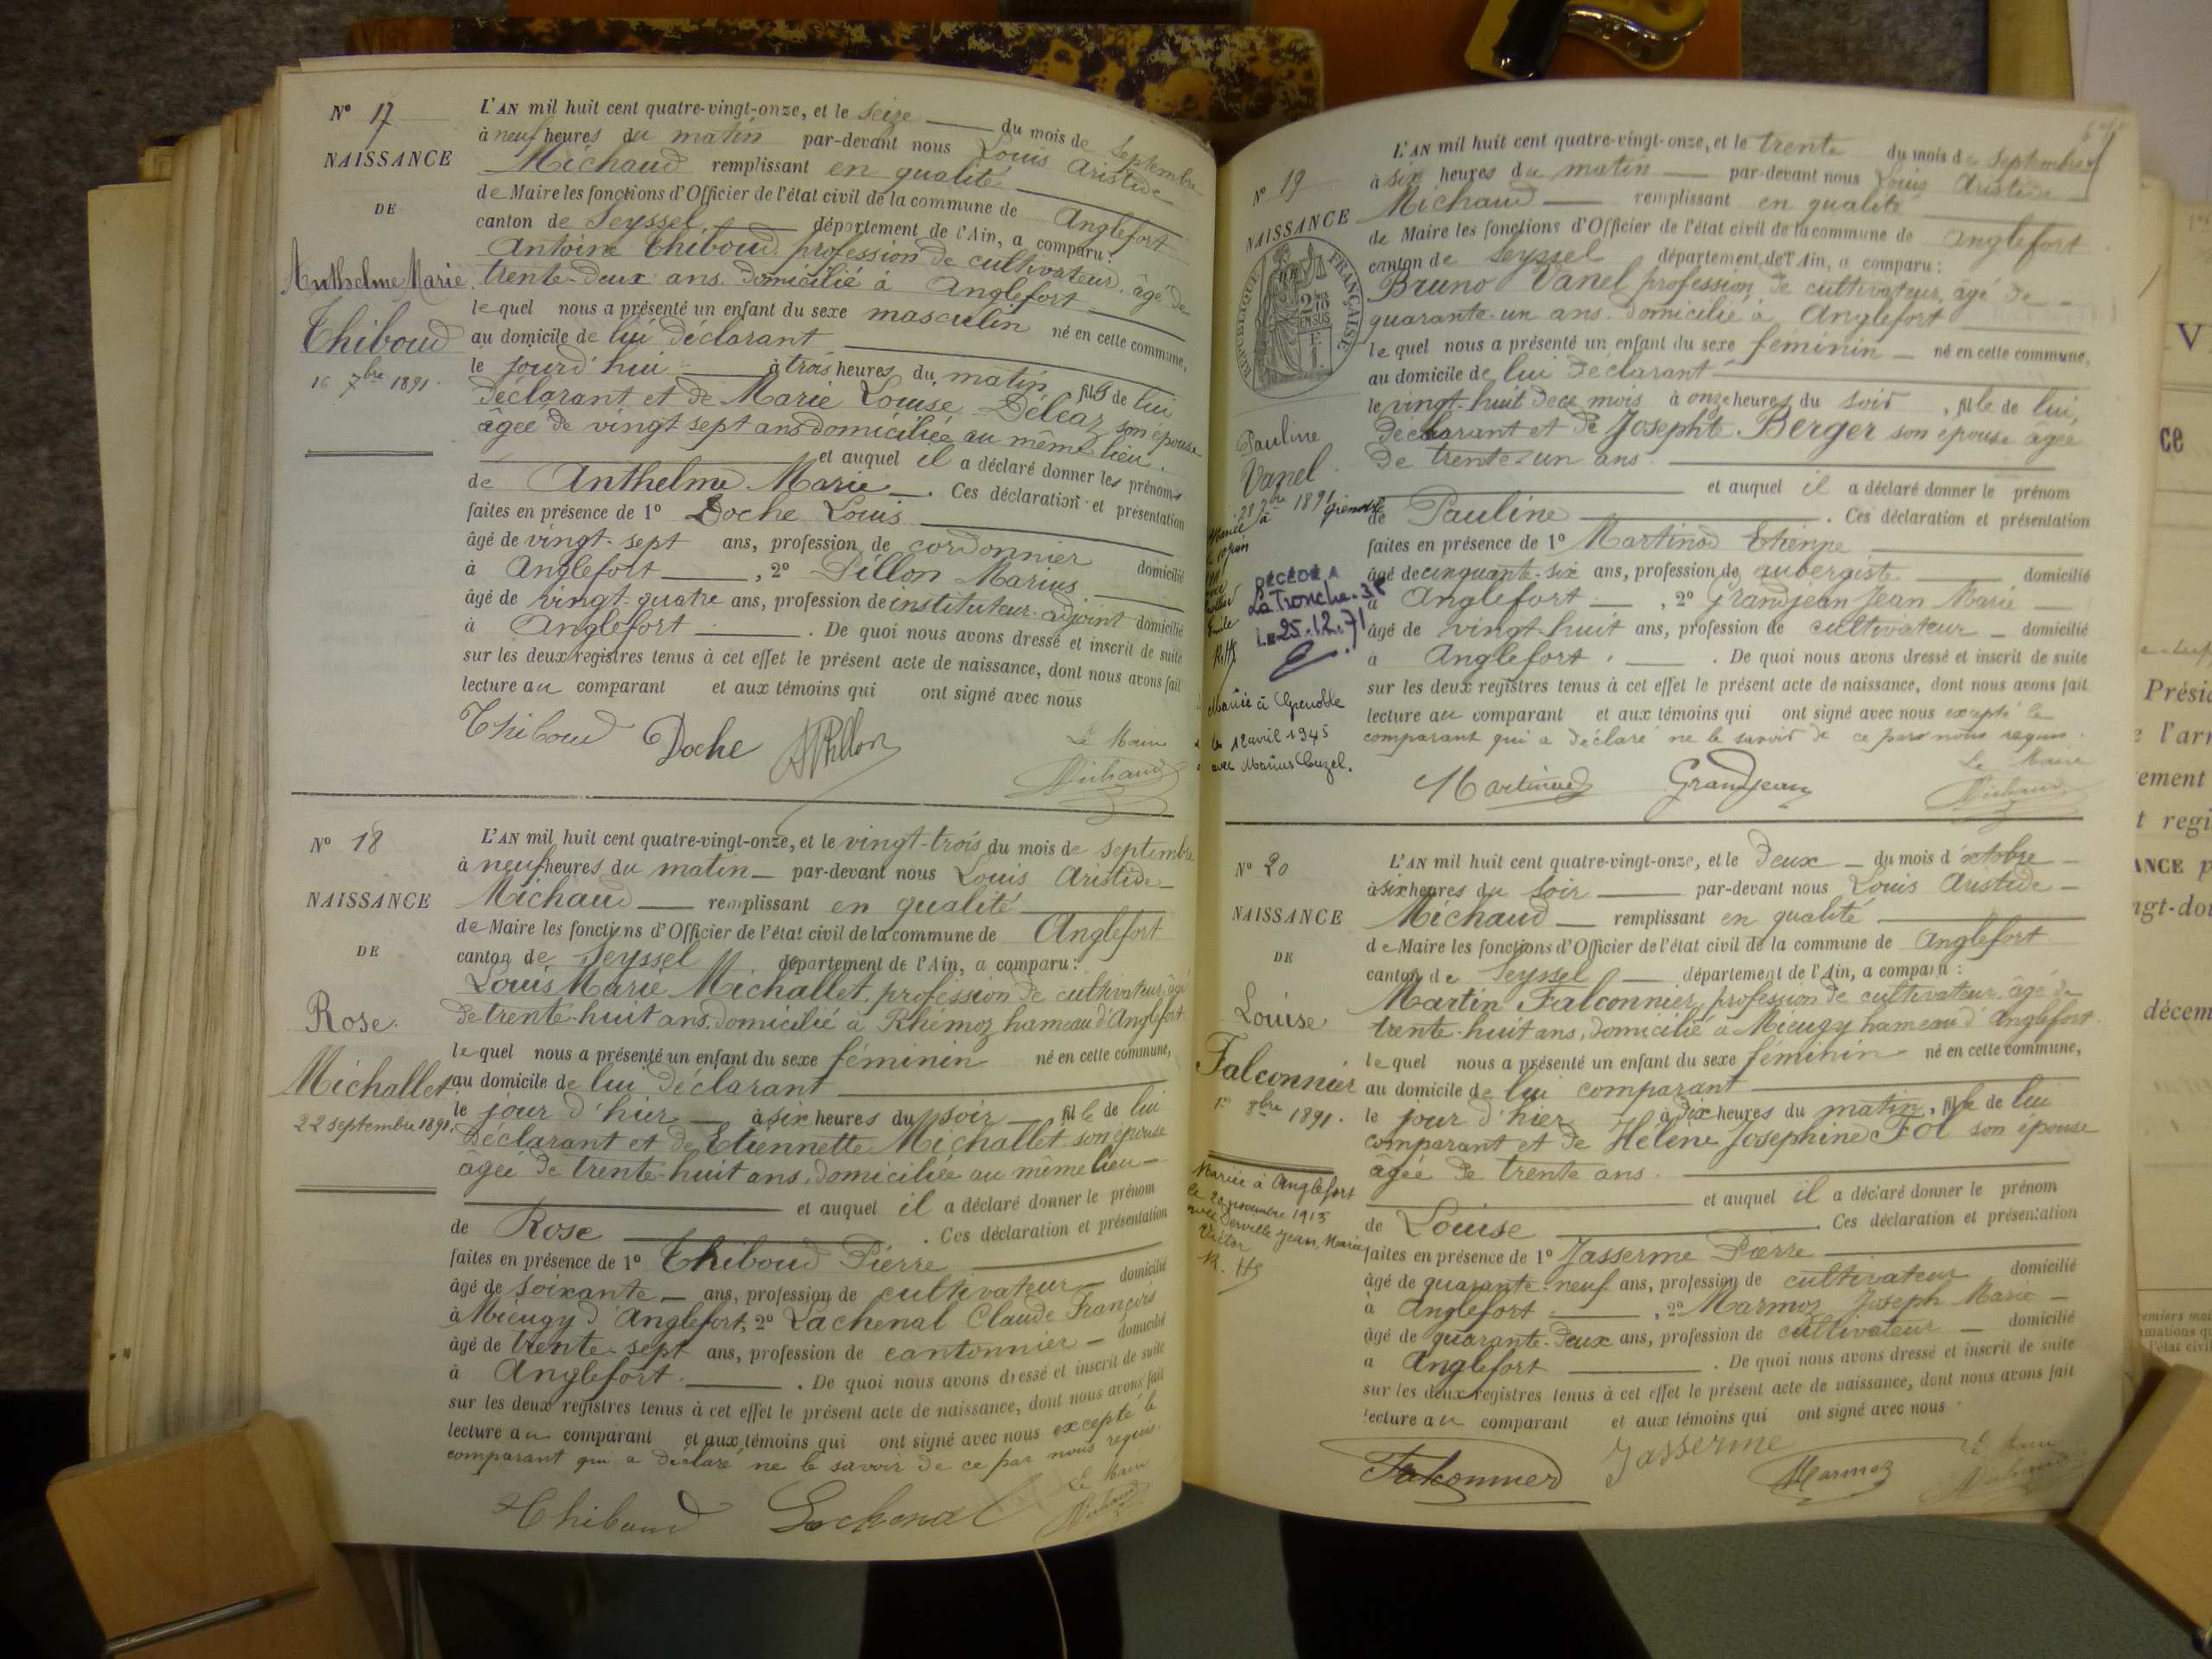 N° 17
NAISSANCE
DE
Anthelme Marie
Thiboud
16 7bre 1891.
L'AN mil huit cent quatre-vingt-onze, et le seize du mois de Septembre
à neuf heures du matin par-devant nous Louis Aristide
Michaud remplissant en qualité
de Maire les fonctions d'Officier de l'état civil de la commune de Anglefort
canton de Seyssel département de l'Ain, a comparu :
Antoine Thiboud, profession de cultivateur, âgé de
trente-deux ans, domicilié à Anglefort
lequel nous a présenté un enfant du sexe masculin né en cette commune,
au domicile de lui déclarant
le jourd'hui à trois heures du matin fils de lui
déclarant et de Marie Louise Déléaz son épouse
âgée de vingt sept ans domiciliée au même lieu.
et auquel il a déclaré donner les prénoms
de Anthelme Marie. Ces déclaration et présentation
faites en présence de 1° Doche Louis
âgé de vingt-sept ans, profession de cordonnier domicilié
à Anglefort, 2° Pillon Marius
âgé de vingt-quatre ans, profession de instituteur-adjoint domicilié
à Anglefort. De quoi nous avons dressé et inscrit de suite
sur les deux registres tenus à cet effet le présent acte de naissance, dont nous avons fait
lecture au comparant et aux témoins qui ont signé avec nous
Thiboud Doche Pillon Le Maire
Michaud
N° 18
NAISSANCE
DE
Rose
Michallet
22 septembre 1891.
L'AN mil huit cent quatre-vingt-onze, et le vingt-trois du mois de septembre
à neuf heures du matin par-devant nous Louis Aristide
Michaud remplissant en qualité
de Maire les fonctions d'Officier de l'état civil de la commune de Anglefort
canton de Seyssel département de l'Ain, a comparu :
Louis Marie Michallet, profession de cultivateur, âgé
de trente-huit ans, domicilié à Rhémoz hameau d'Anglefort
lequel nous a présenté un enfant du sexe féminin né en cette commune,
au domicile de lui déclarant
le jour d'hier à six heures du soir, fille de lui
déclarant et de Etiennette Michallet son épouse
âgée de trente-huit ans, domiciliée au même lieu
et auquel il a déclaré donner le prénom
de Rose. Ces déclaration et présentation
faites en présence de 1° Thiboud Pierre
âgé de soixante ans, profession de cultivateur domicilié
à Mieugy d'Anglefort, 2° Lachenal Claude François
âgé de trente-sept ans, profession de cantonnier domicilié
à Anglefort. De quoi nous avons dressé et inscrit de suite
sur les deux registres tenus à cet effet le présent acte de naissance, dont nous avons fait
lecture au comparant et aux témoins qui ont signé avec nous excepté le
comparant qui a déclaré ne le savoir de ce par nous requis.
Le Maire
Thiboud Lachenal Michaud
N° 19
NAISSANCE
RÉPUBLIQUE FRANÇAISE
2 10 EN SUS
Pauline
Vanel
28 7bre 1891
Mariée à Grenoble
le
DÉCÉDÉ A
La Tronche. 38
Le 25.12.71
Mariée à Grenoble
le 12 avril 1945
avec Marius Cuzel.
L'AN mil huit cent quatre-vingt-onze, et le trente du mois de Septembre
à six heures du matin par-devant nous Louis Aristide
Michaud remplissant en qualité
de Maire les fonctions d'Officier de l'état civil de la commune de Anglefort
canton de Seyssel département de l'Ain, a comparu :
Bruno Vanel profession de cultivateur, âgé de
quarante-un ans, domicilié à Anglefort
lequel nous a présenté un enfant du sexe féminin né en cette commune,
au domicile de lui déclarant
le vingt-huit de ce mois à onze heures du soir, fille de lui
déclarant et de Josephte Berger son épouse âgée
de trente-un ans.
et auquel il a déclaré donner le prénom
de Pauline. Ces déclaration et présentation
faites en présence de 1° Martinod Etienne
âgé de cinquante-six ans, profession de aubergiste domicilié
à Anglefort, 2° Grandjean Jean Marie
âgé de vingt-huit ans, profession de cultivateur domicilié
à Anglefort. De quoi nous avons dressé et inscrit de suite
sur les deux registres tenus à cet effet le présent acte de naissance, dont nous avons fait
lecture au comparant et aux témoins qui ont signé avec nous excepté le
comparant qui a déclaré ne le savoir de ce par nous requis.
Le Maire
Martinod Grandjean Michaud
N° 20
NAISSANCE
DE
Louise
Falconnier
1er 8bre 1891.
Mariée à Anglefort
le 20 novembre 1913
avec Derville Jean, Marie
Victor
L'AN mil huit cent quatre-vingt-onze, et le deux du mois d'octobre
à six heures du soir par-devant nous Louis Aristide
Michaud remplissant en qualité
de Maire les fonctions d'Officier de l'état civil de la commune de Anglefort
canton de Seyssel département de l'Ain, a comparu :
Martin Falconnier, profession de cultivateur, âgé de
trente-huit ans, domicilié à Mieugy hameau d'Anglefort.
lequel nous a présenté un enfant du sexe féminin né en cette commune,
au domicile de lui comparant
le jour d'hier à dix heures du matin, fille de lui
comparant et de Hélène Josephine Fol son épouse
âgée de trente ans.
et auquel il a déclaré donner le prénom
de Louise. Ces déclaration et présentation
faites en présence de 1° Jasserme Pierre
âgé de quarante-neuf ans, profession de cultivateur domicilié
à Anglefort, 2° Marmoz Joseph Marie
âgé de quarante-deux ans, profession de cultivateur domicilié
à Anglefort. De quoi nous avons dressé et inscrit de suite
sur les deux registres tenus à cet effet le présent acte de naissance, dont nous avons fait
lecture au comparant et aux témoins qui ont signé avec nous
Falconnier Jasserme Marmoz Le Maire
Michaud